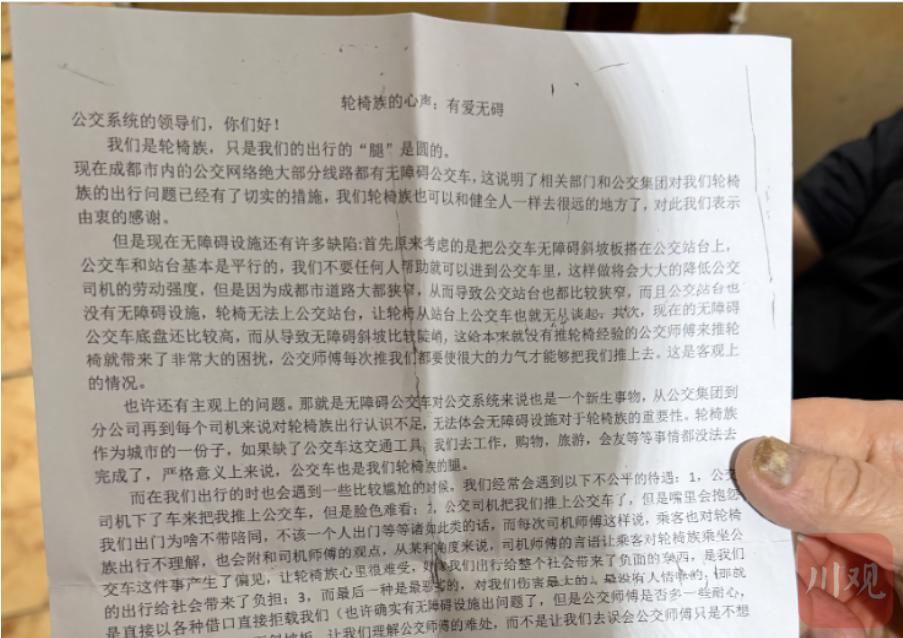 轮椅族的心声：有爱无碍
公交系统的领导们，你们好！
我们是轮椅族，只是我们的出行的“腿”是圆的。
现在成都市内的公交网络绝大部分线路都有无障碍公交车，这说明了相关部门和公交集团对我们轮椅
族的出行问题已经有了切实的措施，我们轮椅族也可以和健全人一样去很远的地方了，对此我们表示
由衷的感谢。
但是现在无障碍设施还有许多缺陷:首先原来考虑的是把公交车无障碍斜坡板搭在公交站台上，
公交车和站台基本是平行的，我们不要任何人帮助就可以进到公交车里，这样做将会大大的降低公交
司机的劳动强度，但是因为成都市道路大都狭窄，从而导致公交站台也都比较狭窄，而且公交站台也
没有无障碍设施，轮椅无法上公交站台，让轮椅从站台上公交车也就无从谈起。其次，现在的无障碍
公交车底盘还比较高，而从导致无障碍斜坡比较陡峭，这给本来就没有推轮椅经验的公交师傅来推轮
椅就带来了非常大的困扰，公交师傅每次推我们都要使很大的力气才能够把我们推上去。这是客观上
的情况。
也许还有主观上的问题。那就是无障碍公交车对公交系统来说也是一个新生事物，从公交集团到
分公司再到每个司机来说对轮椅族出行认识不足，无法体会无障碍设施对于轮椅族的重要性。轮椅族
作为城市的一份子，如果缺了公交车这交通工具，我们去工作，购物，旅游，会友等等事情都没法去
完成了，严格意义上来说，公交车也是我们轮椅族的腿。
而在我们出行的时也会遇到一些比较尴尬的时候，我们经常会遇到以下不公平的待遇：1，公交
司机下了车来把我推上公交车，但是脸色难看；2，公交司机把我们推上公交车了，但是嘴里会抱怨
我们出门为啥不带陪同，不该一个人出门等等诸如此类的话，而每次司机师傅这样说，乘客也对轮椅
族出行不理解，也会附和司机师傅的观点，从某种角度来说，司机师傅的言语让乘客对轮椅族乘坐公
交车这件事产生了偏见，让轮椅族心里很难受，好像我们出行给整个社会带来了负面的东西，是我们
的出行给社会带来了负担；3，而最后一种是最恶劣的，对我们伤害最大的，是没有人情味的，那就
是直接以各种借口直接拒载我们（也许确实有无障碍设施出问题了，但是公交师傅是否多一些耐心，
斜坡板，让我们理解公交师傅的难处，而不是让我们去误会公交师傅只是不想
川观